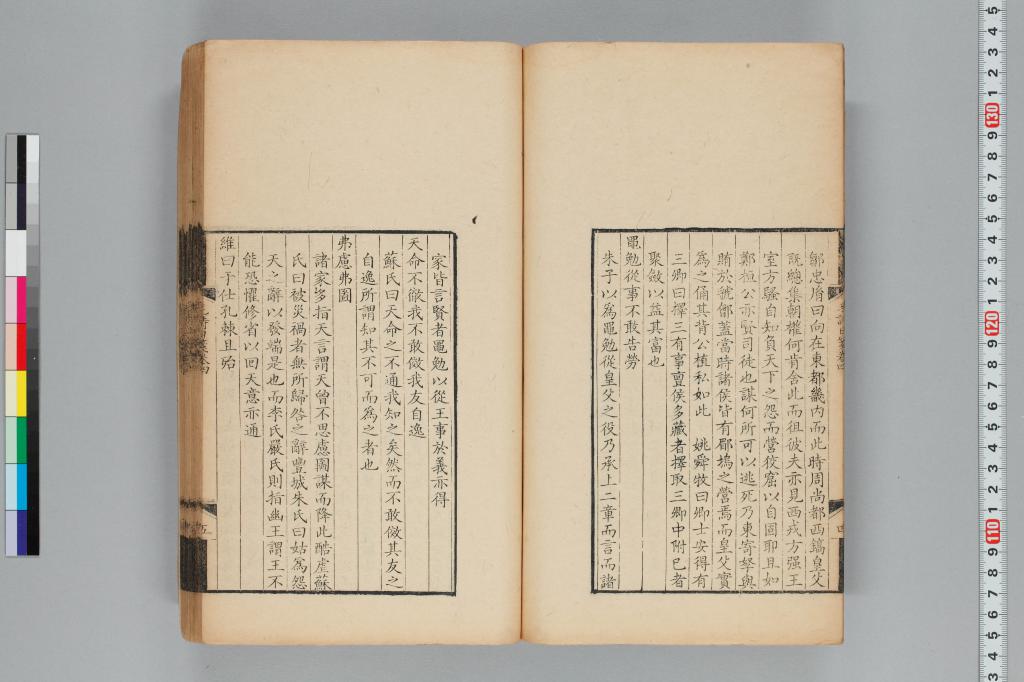 鄒忠胤曰向在東都畿内而此時周尚都西鎬皇父
既總集朝權何肯舍此而徂彼夫亦見西戎方强王
室方騷自知負天下之怨而營狡窟以自固耶且如
鄭桓公亦賢司徒也謀何所可以逃死乃東寄孥與
賄於虢鄶蓋當時諸侯皆有郿塢之營焉而皇父實
為之俑其背公植私如此　姚舜牧曰卿士安得有
三卿曰擇三有事亶侯多藏者擇取三卿中附己者
聚斂以益其富也
黽勉從事不敢告勞
朱子以為黽勉從皇父之役乃承上二章而言而諸
家皆言賢者黽勉以從王事於義亦得
天命不徹我不敢傚我友自逸
蘇氏曰天命之不通我知之矣然而不敢傚其友之
自逸所謂知其不可而為之者也
弗慮弗圖
諸家多指天言謂天曾不思慮圖謀而降此酷虐蘇
氏曰被災禍者無所歸咎之辭豐城朱氏曰姑為怨
天之辭以發端是也而李氏嚴氏則指幽王謂王不
能恐懼修省以回天意亦通
維曰于仕孔棘且殆
四
五